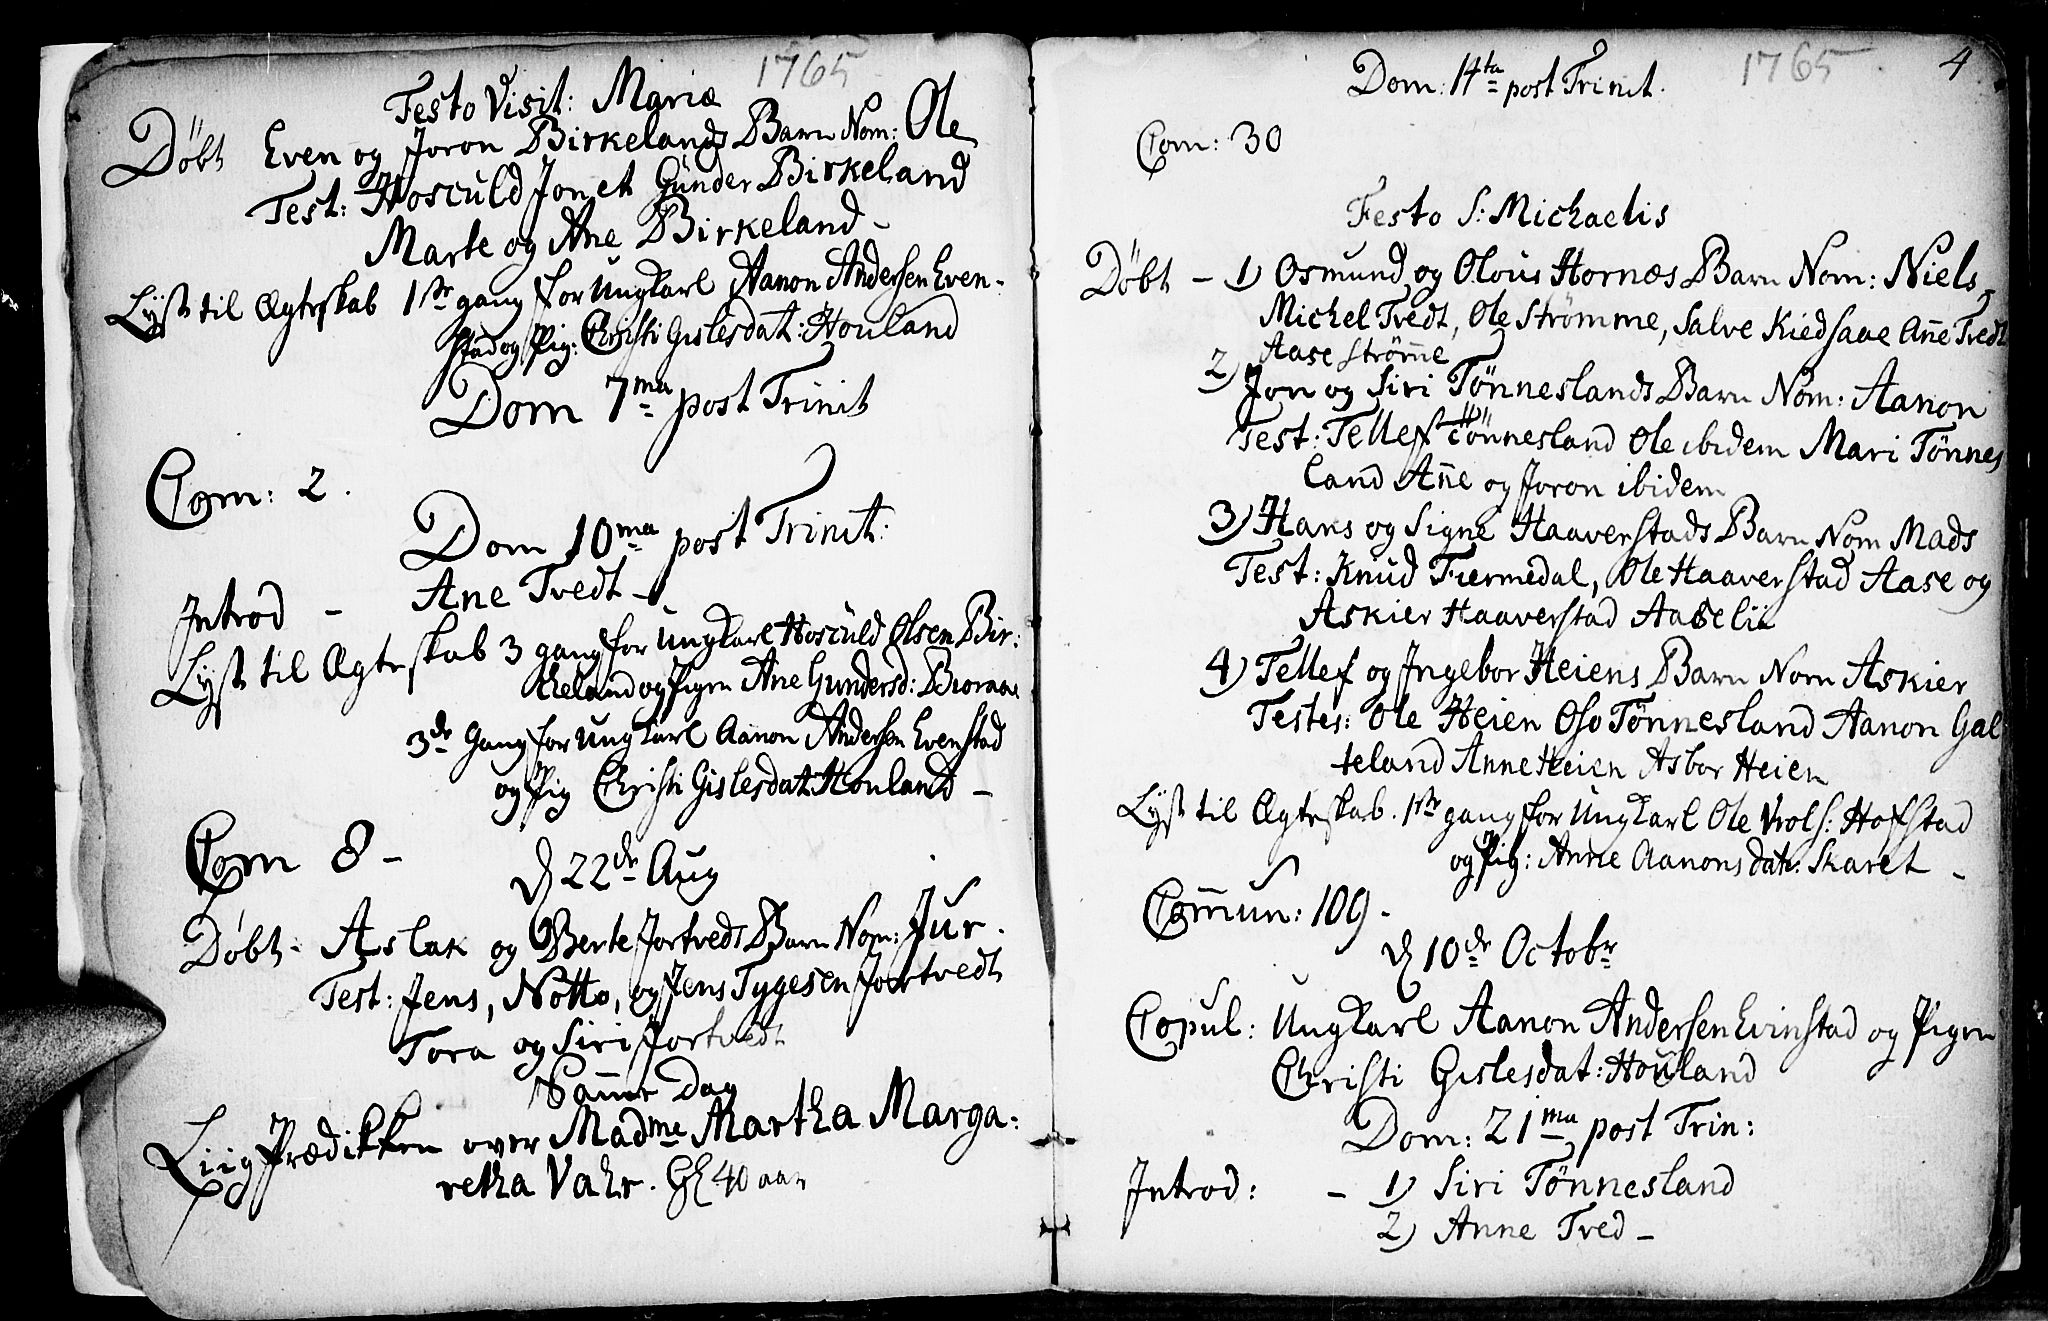 1765
Festo Visit: Mariæ
Døbt Even og Joron Birkelands Barn Nom: Ole
Test: Hosculd Jon et Gunder Birkeland
Marte og Ane Birkeland -
Lyst til Ægteskab 1ste gang for Ungkarl Aanon Andersen Even-
stad og Pig: Christi Gislesdat: Houland
Dom 7ma post Trinit
Com: 2.
Dom 10ma post Trinit:
Introd - Ane Tvedt -
Lyst til Ægteskab 3 gang for Ungkarl Hosculd Olsen Bir:
keland og Pigen Ane Gundersd: Bioraae
3de Gang for Ungkarl Aanon Andersen Evenstad
og Pig Christi Gislesdat Houland -
Com 8 -
D 22de Aug
Døbt - Aslak og Berte Jortveds Barn Nom: Jur.
Test: Jens, Notto, og Jens Tygesen Jortvedt
Tora og Siri Jortvedt
Samme Dag
Liig Prædikken over Madme Martha Marga:
retha Vahr. Gl 40 aar
1765 4
Dom: 14ta post Trinit.
Com: 30
Festo S: Michaelis
Døbt - 1) Osmund og Olous Hornæs Barn Nom: Niels,
Michel Tvedt, Ole Strømme, Salve Kiedsaae Ane Tvedt
Aase Strøme
2) Jon og Siri Tønneslands Barn Nom: Aanon
Test: Tellef Tönnesland Ole ibidem Mari Tönnes
land Ane og Joron ibidem
3) Hans og Signe Haaverstads Barn Nom Mads
Test: Knud Fiermedal, Ole Haaverstad Aase og
Askier Haaverstad Aase Lii
4) Tellef og Ingebor Heiens Barn Nom Askier
Testes: Ole Heien Oso Tönnesland Aanon Gal
teland Anne Heien Asbor Heien
Lyst til Ægteskab. 1ste gang for Ungkarl Ole Vrols: Hofstad
og Pig: Anne Aanonsdatr: Skaret -
Comun: 109 -
D 10de Octobr
Copul: Ungkarl Aanon Andersen Evinstad og Pigen
Christi Gislesdat: Houland
Dom: 21ma post Trin:
Introd: - 1) Siri Tönnesland
2) Anne Tved -